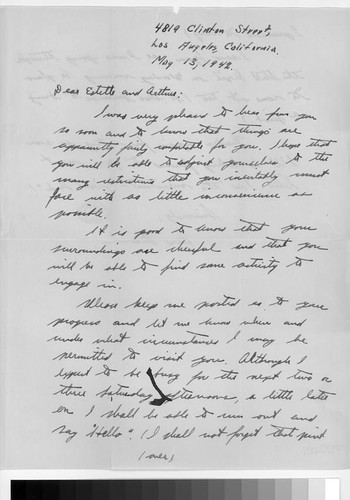 4819 Clinton Street,
Los Angeles, California.
May 13, 1942.
Dear Estelle and Arthur:
I was very pleased to hear from you
so soon and to know that things are
apparently fairly comfortable for you. I hope that
you will be able to adjust yourselves to the
many restrictions that you inevitably must
face with as little inconvenience as
possible.
It is good to know that your
surroundings are cheerful and that you
will be able to find some activity to
engage in.
Please keep me posted as to your
progress and let me know when and
under what circumstances I may be
permitted to visit you. Although I
expect to be busy for the next two or
three Saturday afternoons, a little later
on I shall be able to run out and
say "Hello". (I shall not forget that pint
(over)